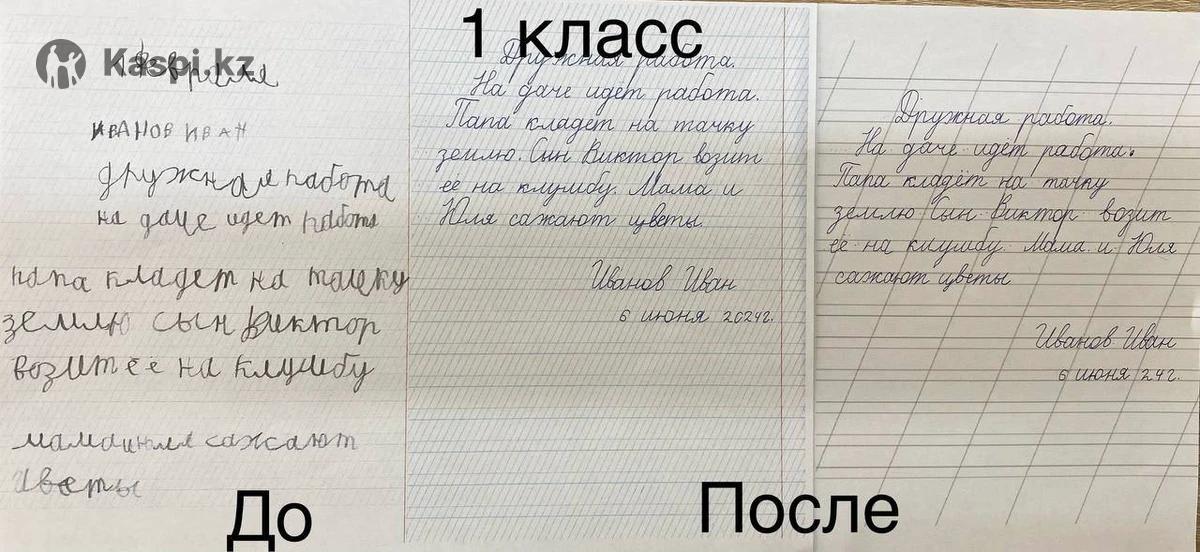 1 класс
Kaspi.kz
ИВАНОВ ИВАН
дружная работа
на даче идет работа
папа кладет на тачку
землю сын Виктор
возит её на клумбу
мамаиюля сажают
цветы
До
Дружная работа.
На даче идёт работа.
Папа кладёт на тачку
землю. Сын Виктор возит
ее на клумбу. Мама и
Юля сажают цветы.
Иванов Иван
6 июня 2024г.
Дружная работа.
На даче идёт работа.
Папа кладёт на тачку
землю Сын Виктор возит
ее на клумбу. Мама и Юля
сажают цветы
Иванов Иван
6 июня 24г.
После